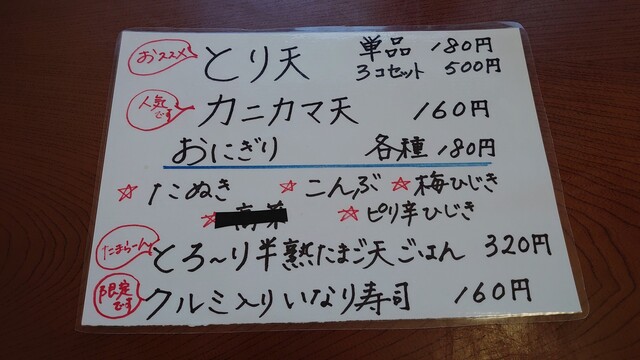 おススメ とり天 単品 180円
3コセット 500円
人気です カニカマ天 160円
おにぎり 各種 180円
☆たぬき ☆こんぶ ☆梅ひじき
☆ピリ辛ひじき
たまらーん とろ〜り半熟たまご天ごはん 320円
限定です クルミ入りいなり寿司 160円